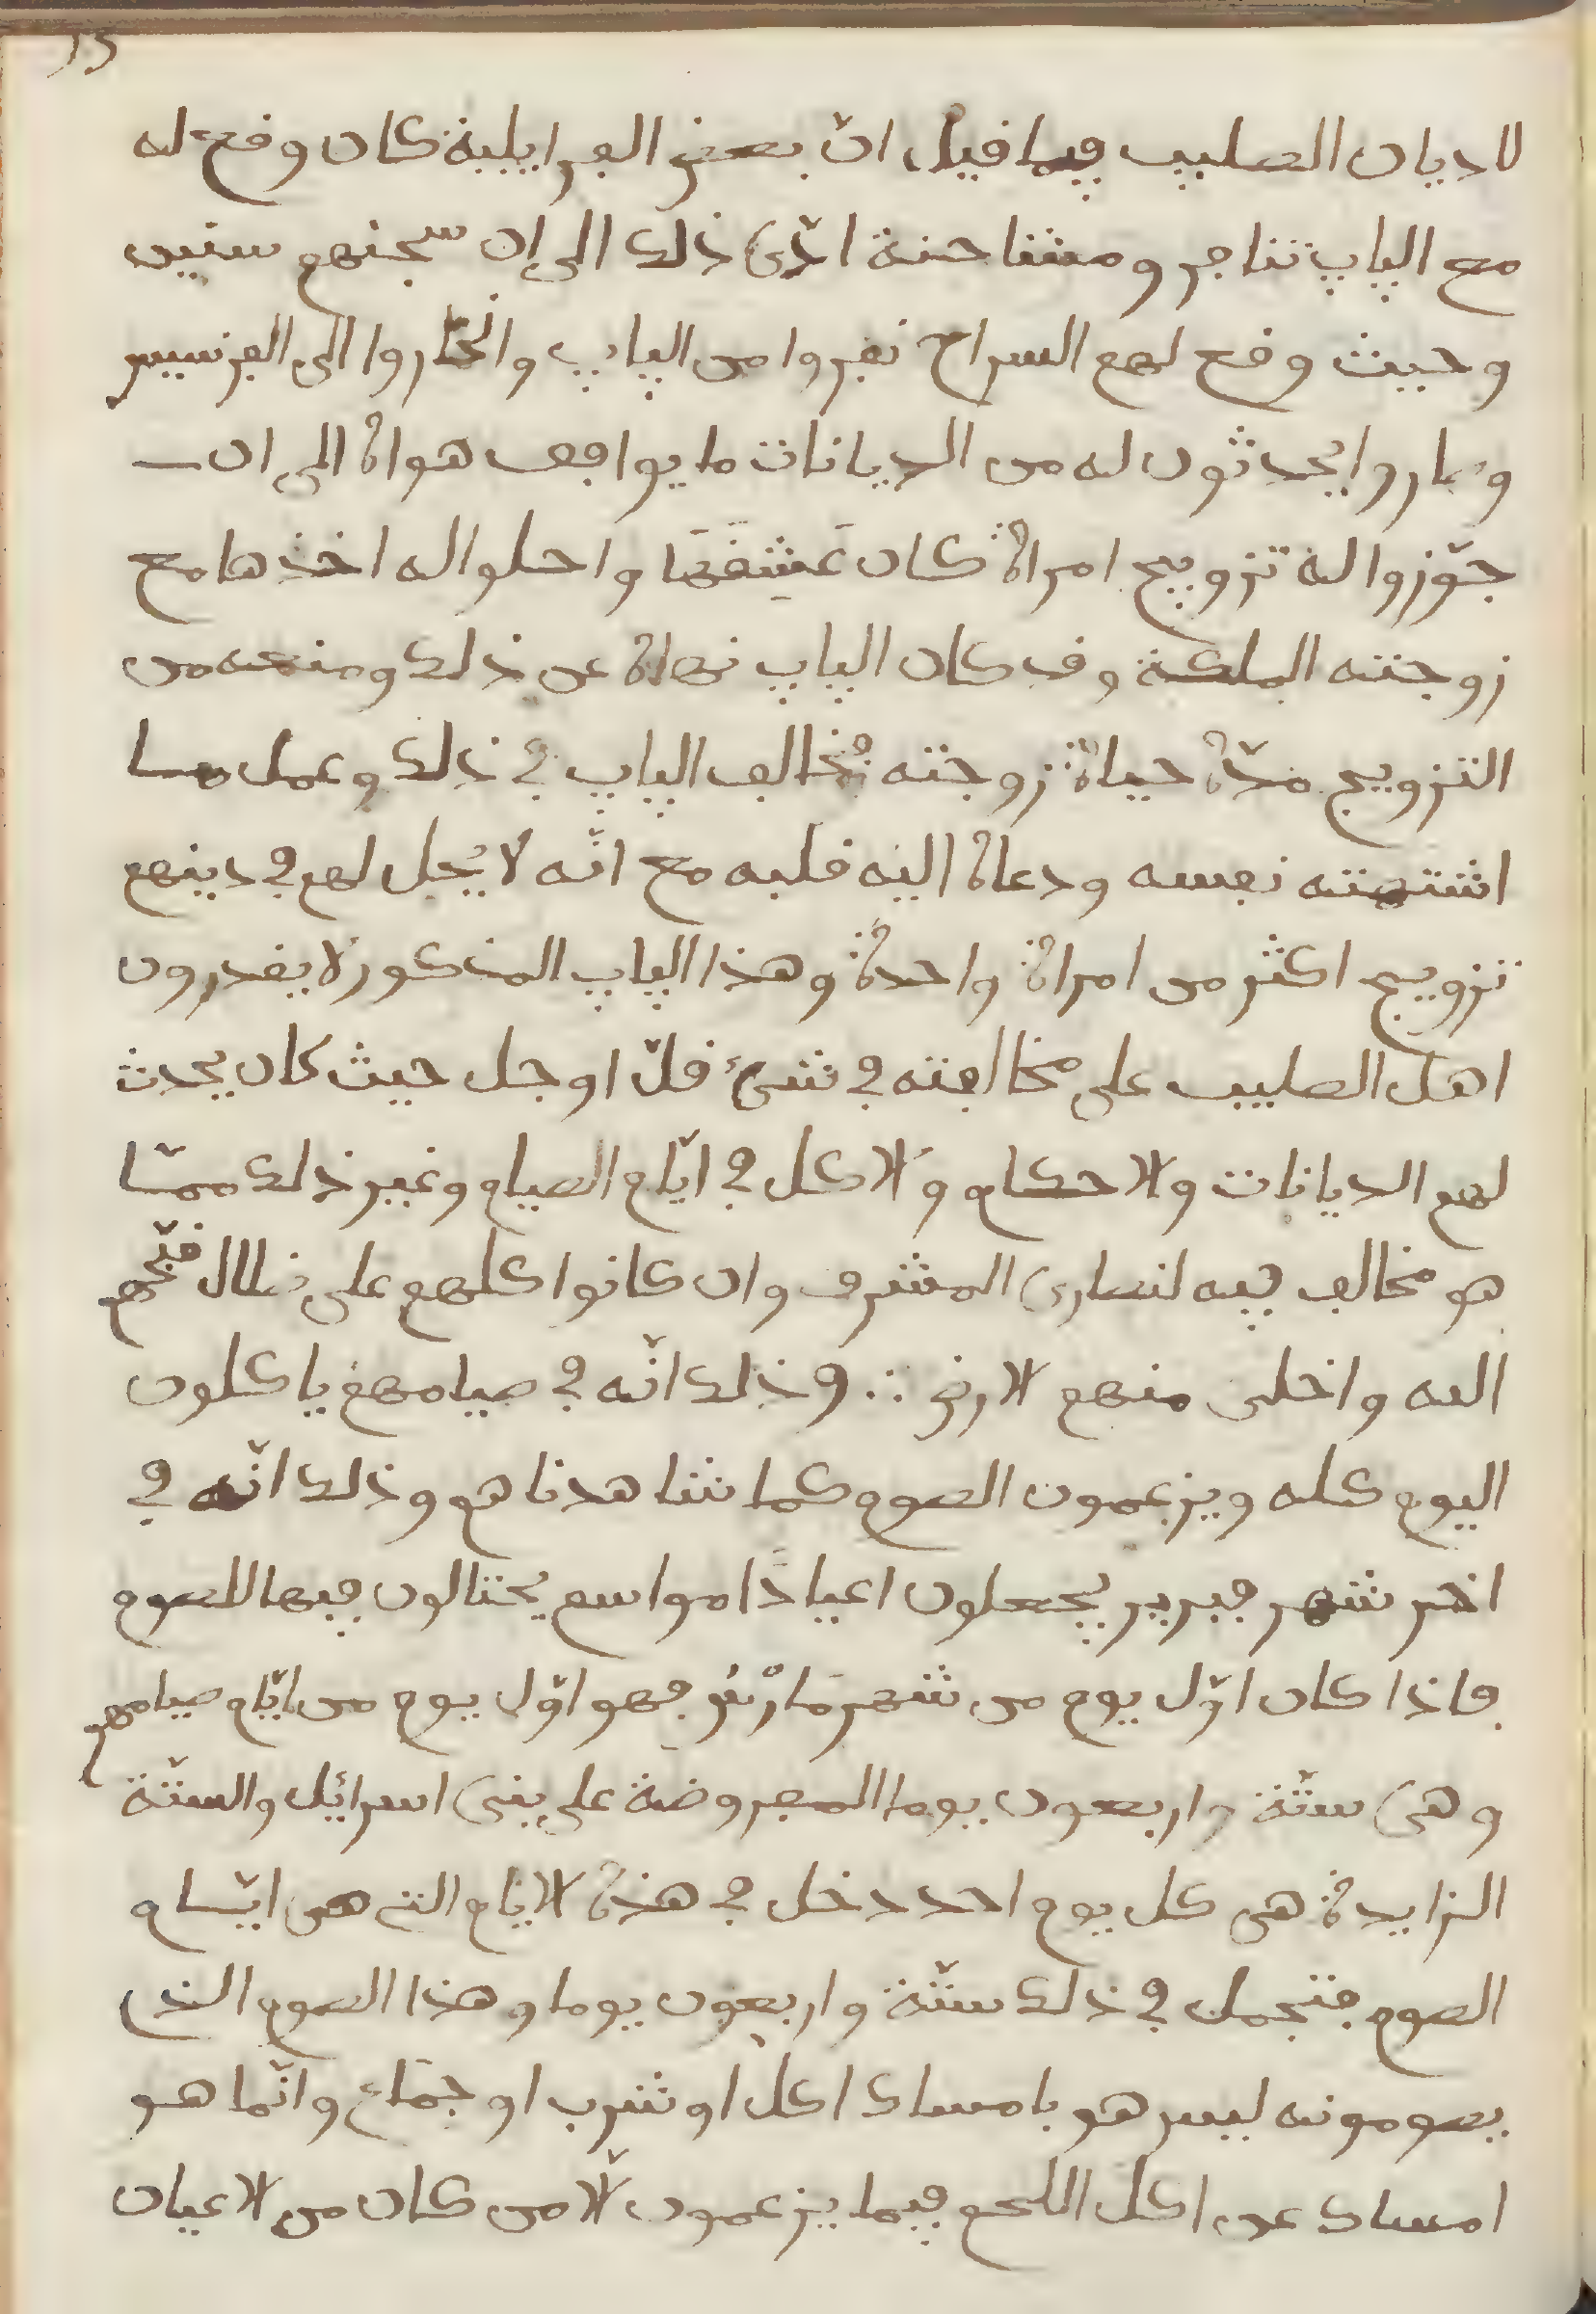 15
لاديان الصليب فيما قيل انّ بعض الفرايلية كان وقع له
مع الپاپ تناجر ومشاحنة ادّى ذلك الى ان سجنهم سنين
وحيث وقع لهم السراح نفروا من الپاپ وانحازوا الى الفرنسيس
وصاروا يحدثون له من الديانات ما يوافق هواه الى ان
جوّزوا له تزويج امراة كان عَشقَهَا واحلوا له اخذها مع
زوجته الملكة وقد كان الپاپ نهاه عن ذلك ومنعه من
التزويج مدّة حياة زوجته فخالف الپاپ في ذلك وعمل ما
اشتهته نفسه ودعاه اليه قلبه مع انّه لا يحل لهم في دينهم
تزويج اكثر من امراة واحدة وهذا الپاپ المذكور لا يقدرون
اهل الصليب على مخالفته في شيء قلّ او جل حيث كان يحدث
لهم الديانات والاحكام والاكل في ايّام الصيام وغير ذلك ممّا
هو مخالف فيه لنصارى المشرق وان كانوا كلهم على ضلال قبّحهم
الله واخلى منهم الارض ∴ وذلك انّه في صيامهم ياكلون
اليوم كله ويزعمون الصوم كما شاهدناهم وذلك انّه في
اخر شهر فبرير يجعلون اعيادًا مواسم يحتالون فيها للصوم
فاذا كان اوّل يوم من شهر مَارْسُ فهو اوّل يوم من ايّام صيامهم
وهي ستّة واربعون يوما المفروضة على بني اسرائيل والستّة
الزايدة هي كل يوم احد دخل في هذه الايّام التي هي ايّام
الصوم فتجمل في ذلك ستّة واربعون يوما وهذا الصوم الذي
يصومونه ليس هو بامساك اكل او شرب او جمَاع وانّما هو
امساك عن اكل اللحم فيما يزعمون الّا من كان من الاعيان